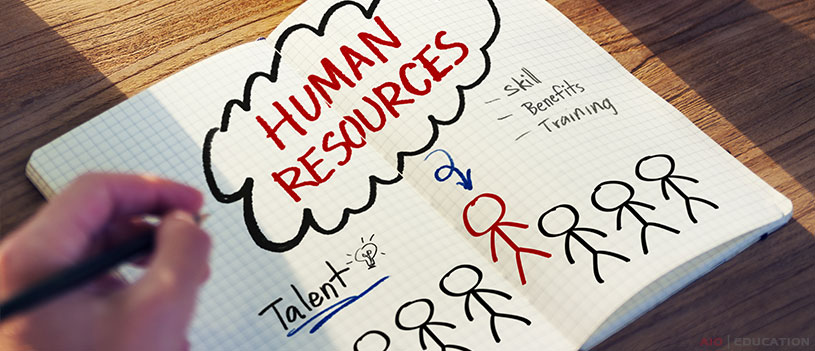 HUMAN
RESOURCES
- Skill
- Benefits
- Training
Talent
EDUCATION